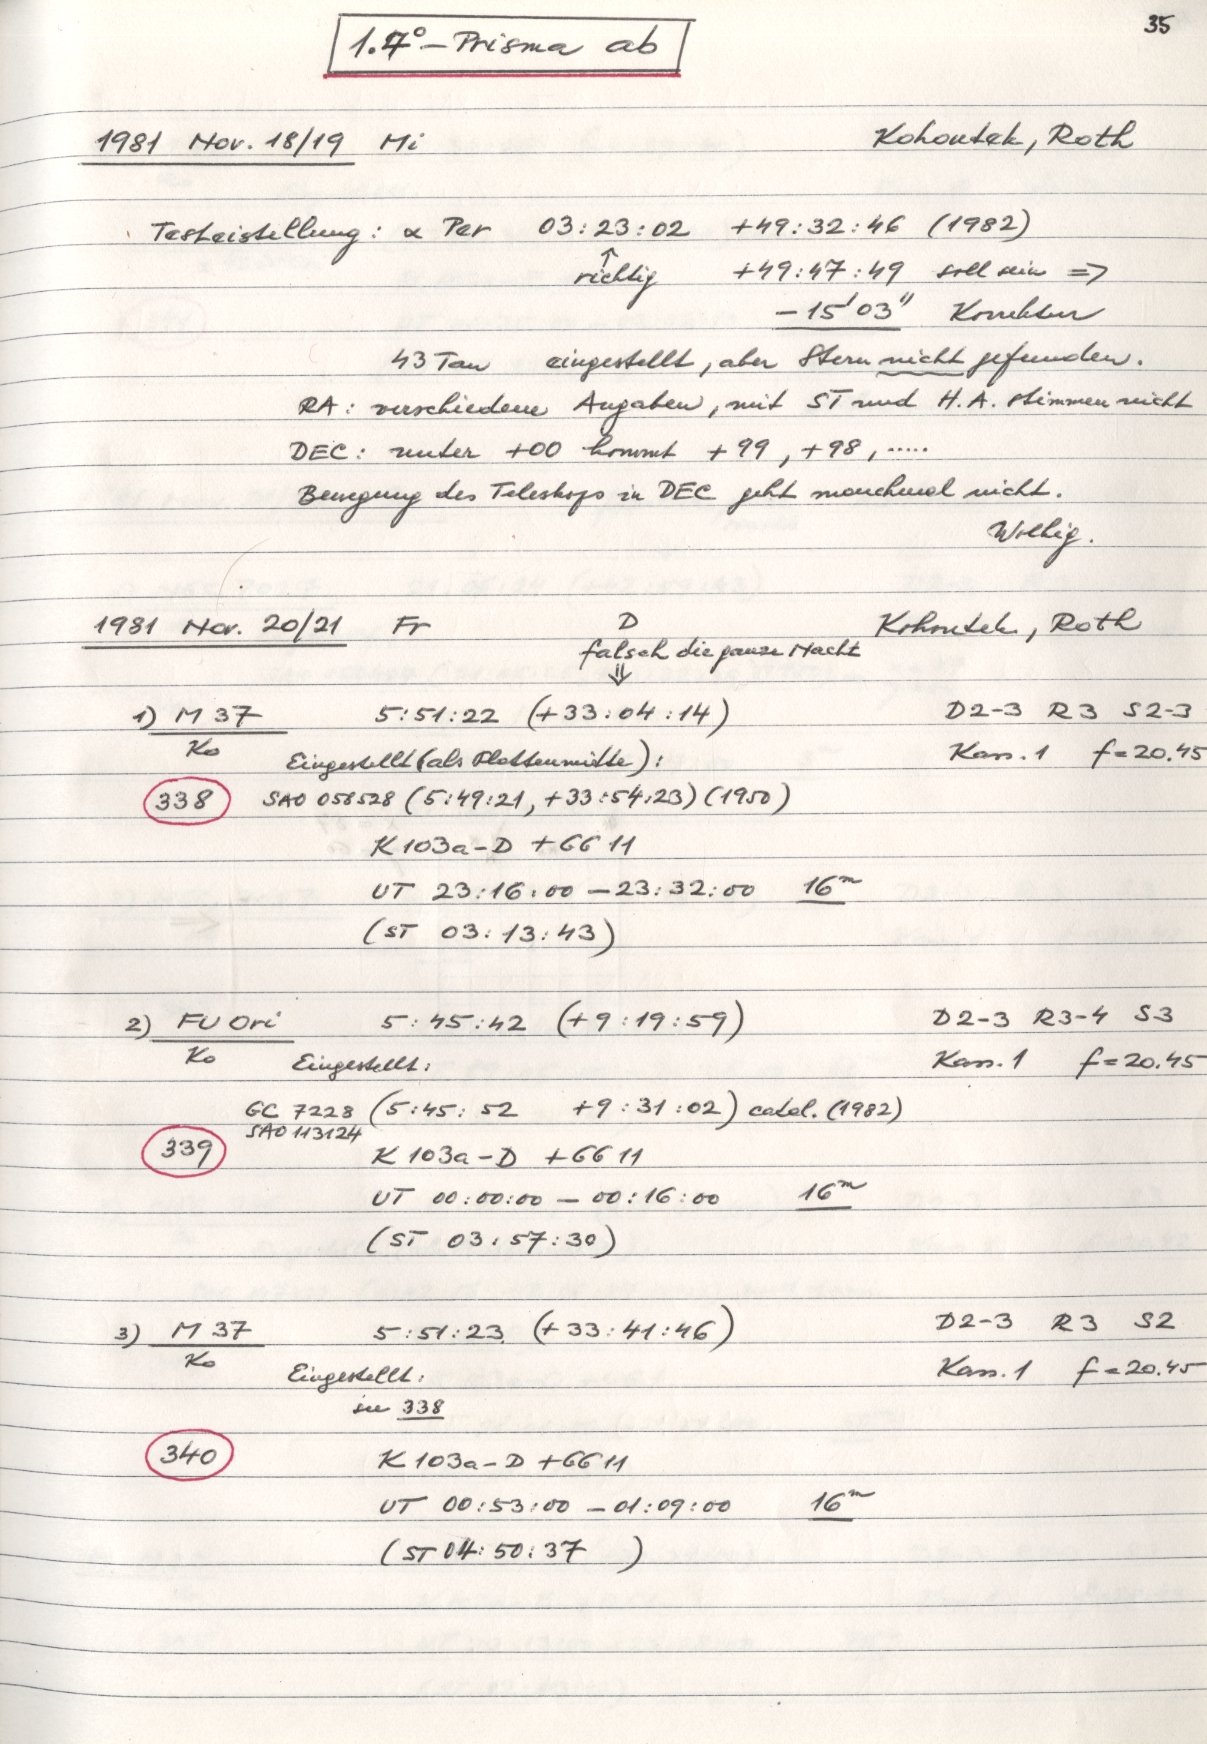 35
1.7°-Prisma ab
1981 Nov. 18/19 Mi Kohoutek, Roth
Testeistellung: α Per 03:23:02 +49:32:46 (1982)
↑
richtig +49:47:49 soll sein =>
-15'03" Korrektur
43 Tau eingestellt, aber Stern nicht gefunden.
RA: verschiedene Angaben, mit ST und H.A. stimmen nicht
DEC: unter +00 kommt +99, +98, .....
Bewegung des Teleskops in DEC geht manchmal nicht.
Wolkig.
1981 Nov. 20/21 Fr D Kohoutek, Roth
falsch die ganze Nacht
⇓
1) M 37 5:51:22 (+33:04:14) D2-3 R3 S2-3
Ko Eingestellt (als Plattenmitte): Kass. 1 f=20.45
338 SAO 058528 (5:49:21, +33:54:23) (1950)
K 103a-D +GG 11
UT 23:16:00 - 23:32:00 16m
(ST 03:13:43)
2) FU Ori 5:45:42 (+9:19:59) D2-3 R3-4 S3
Ko Eingestellt: Kass. 1 f=20.45
GC 7228 (5:45:52 +9:31:02) catal. (1982)
SAO 113124
339 K 103a-D +GG 11
UT 00:00:00 - 00:16:00 16m
(ST 03:57:30)
3) M 37 5:51:23 (+33:41:46) D2-3 R3 S2
Ko Eingestellt: Kass. 1 f=20.45
338
340 K 103a-D +GG 11
UT 00:53:00 - 01:09:00 16m
(ST 04:50:37 )